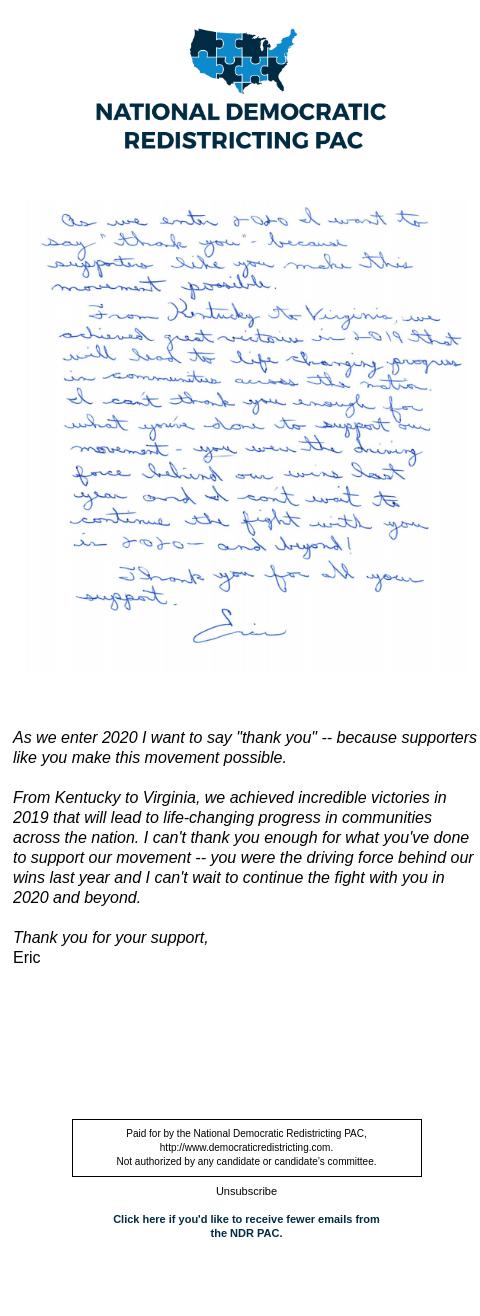 NATIONAL DEMOCRATIC
REDISTRICTING PAC
As we enter 2020 I want to
say "thank you" - because
supporters like you make this
movement possible.
From Kentucky to Virginia, we
achieved great victories in 2019 that
will lead to life changing progress
in communities across the nation.
I can't thank you enough for
what you've done to support our
movement - you were the driving
force behind our wins last
year and I can't wait to
continue the fight with you
in 2020 - and beyond!
Thank you for all your
support.
Eric
As we enter 2020 I want to say "thank you" -- because supporters
like you make this movement possible.
From Kentucky to Virginia, we achieved incredible victories in
2019 that will lead to life-changing progress in communities
across the nation. I can't thank you enough for what you've done
to support our movement -- you were the driving force behind our
wins last year and I can't wait to continue the fight with you in
2020 and beyond.
Thank you for your support,
Eric
Paid for by the National Democratic Redistricting PAC,
http://www.democraticredistricting.com.
Not authorized by any candidate or candidate's committee.
Unsubscribe
Click here if you'd like to receive fewer emails from
the NDR PAC.